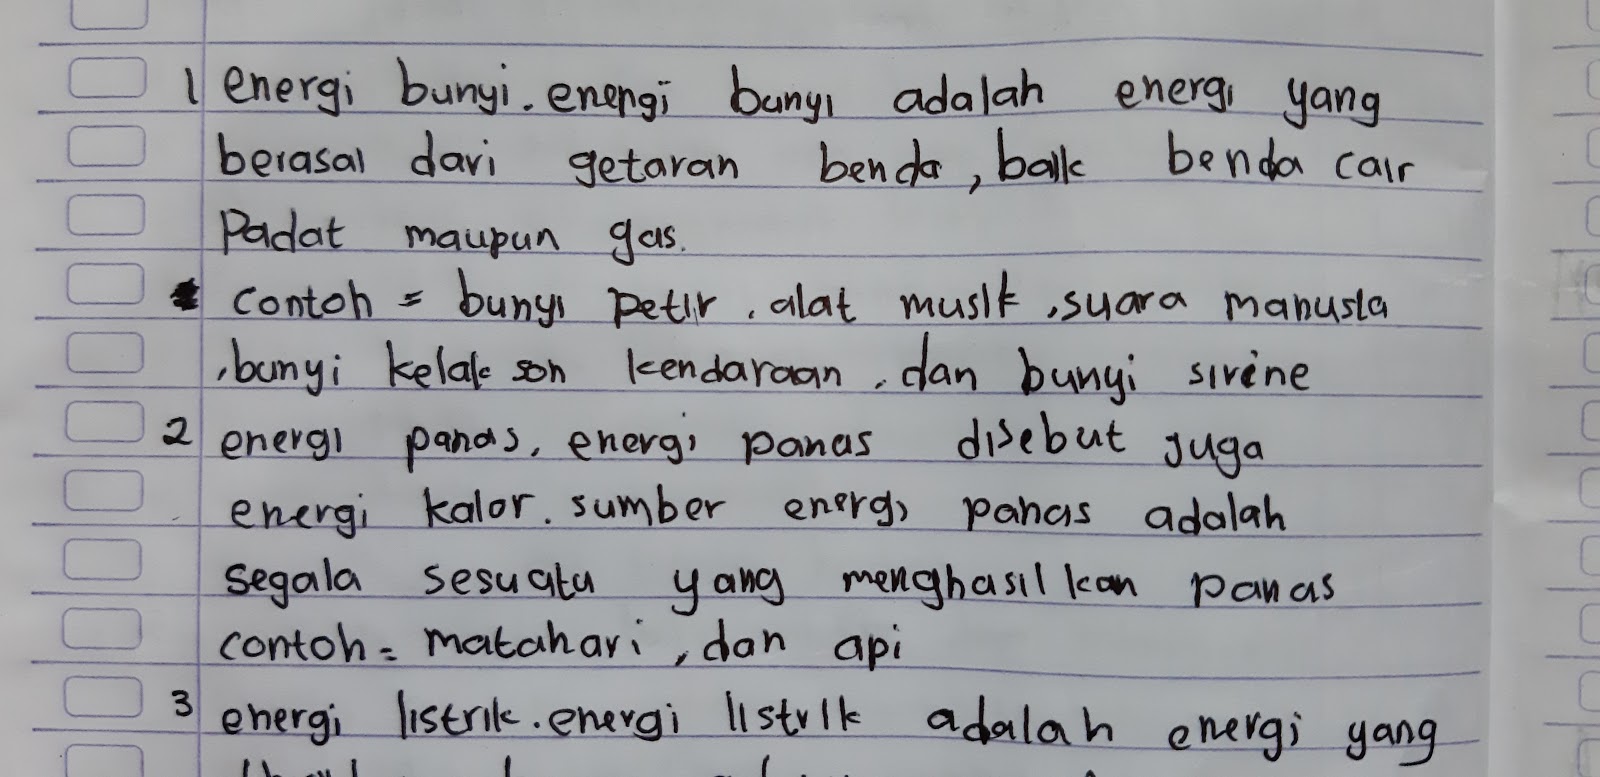 1 energi bunyi. energi bunyi adalah energi yang
berasal dari getaran benda, baik benda cair
Padat maupun gas.
contoh = bunyi petir, alat musik, suara manusia
, bunyi kelak son kendaraan, dan bunyi sirine
2 energi panas. energi panas disebut juga
energi kalor. sumber energi panas adalah
segala sesuatu yang menghasilkan panas
contoh = matahari, dan api
3 energi listrik. energi listrik adalah energi yang